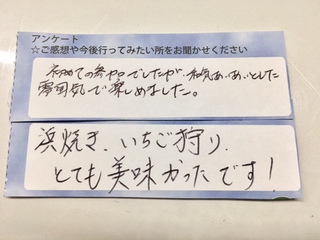 アンケート
☆ご感想や今後行ってみたい所をお聞かせください
初めての参加でしたが、和気あいあいとした
雰囲気で楽しめました。
浜焼き、いちご狩り、
とても美味かったです!